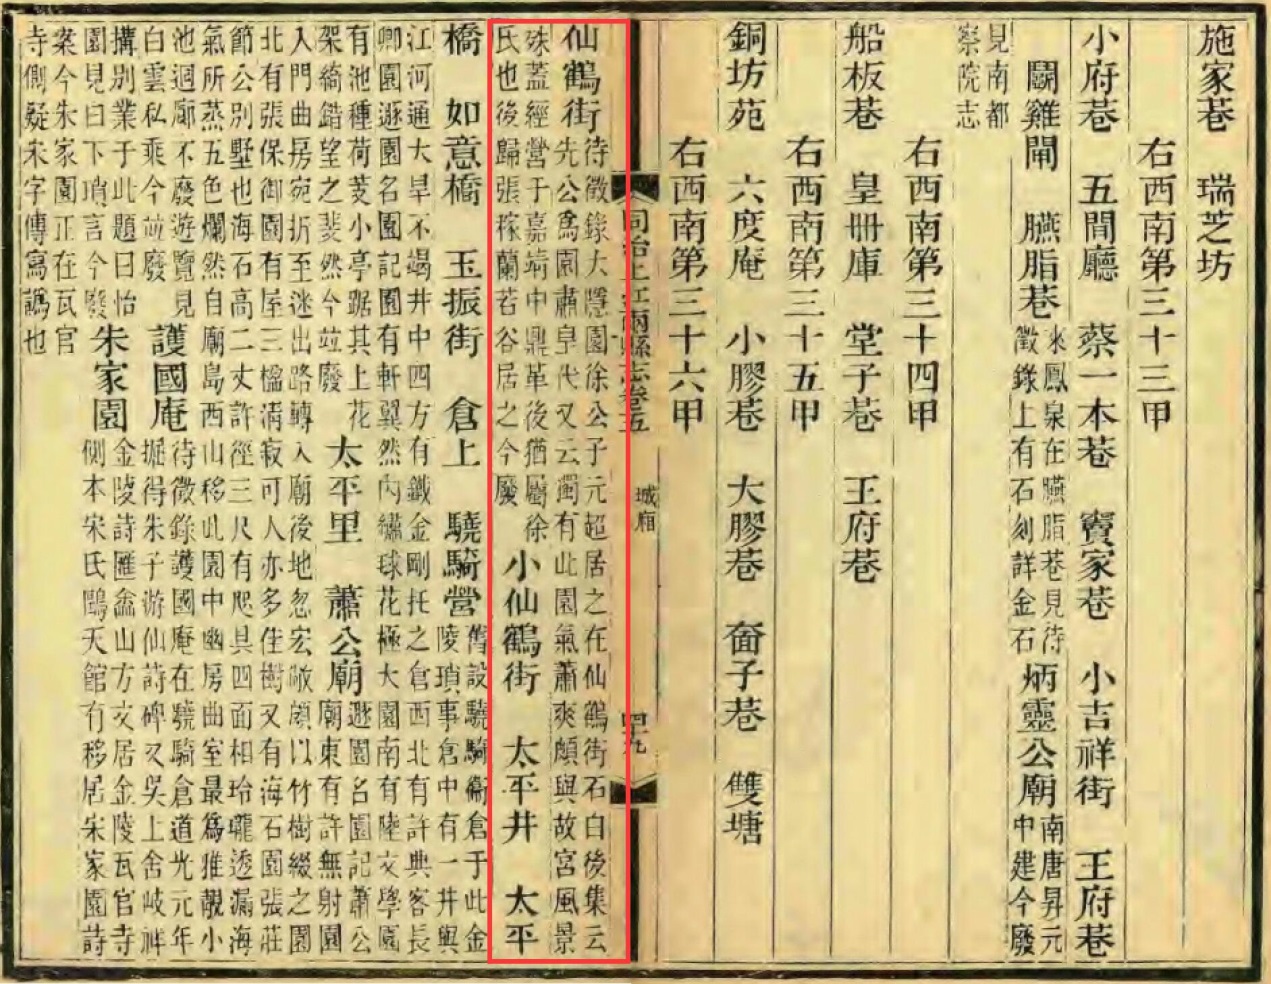 施家巷　瑞芝坊
右西南第三十三甲
小府巷　五間廳　蔡一本巷　竇家巷　小吉祥街　王府巷
鬭雞閘　臙脂巷　來鳳泉在臙脂巷見待
徵錄上有石刻詳金石　炳靈公廟　南唐昇元
中建今廢
見南都
察院志
右西南第三十四甲
船板巷　皇冊庫　堂子巷　王府巷
右西南第三十五甲
銅坊苑　六度庵　小膠巷　大膠巷　奤子巷　雙塘
右西南第三十六甲
同治上江兩縣志卷五　城廂　四九
仙鶴街　待徵錄大隱園徐公子元超居之在仙鶴街石白後集云
先公爲園肅皇代又云獨有此園氣蕭爽頗與故宮風景
殊蓋經營于嘉靖中鼎革後猶屬徐
氏也後歸張稼蘭若谷居之今廢　小仙鶴街　太平井　太平
橋　如意橋　玉振街　倉上　驍騎營　舊設驍騎衞倉于此金
陵瑣事倉中有一井與
江河通大旱不竭井中四方有鐵金剛托之倉西北有許典客長
卿園遯園名園記園有軒翼然內繡球花極大園南有陸文學園
有池種荷芰小亭踞其上花
架綺錯望之斐然今竝廢　太平里　蕭公廟　遯園名園記蕭公
廟東有許無射園
入門曲房宛折至迷出路轉入廟後地忽宏敞頗以竹樹綴之園
北有張保御園有屋三楹淸寂可人亦多佳樹又有海石園張莊
節公別墅也海石高二丈許徑三尺有爬具四面相玲瓏透漏海
氣所蒸五色爛然自廟島西山移此園中幽房曲室最爲雅覯小
池迴廊不廢遊覽見
白雲私乘今竝廢　護國庵　待徵錄護國庵在驍騎倉道光元年
堀得朱子游仙詩碑又吳上舍岐祥
搆別業于此題曰怡
園見白下瑣言今廢　朱家園　金陵詩匯盦山方文居金陵瓦官寺
側本宋氏鷗天館有移居宋家園詩
案今朱家園正在瓦官
寺側疑朱字傳寫譌也